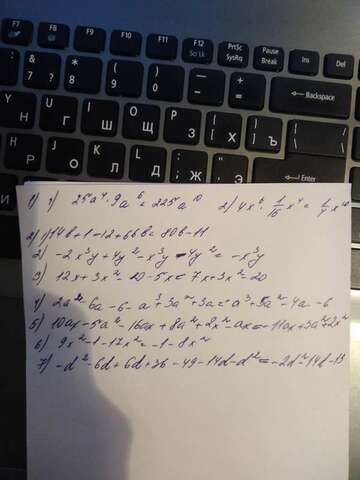 F7 F8 F9 F10 F11 F12 PrtSc Pause Ins Del
So Lk SysRq Break
& 7 ? * 8 ( 9 ) 0 — - + = Backspace
Y Н U Г I Ш O Щ P З { [ Х } ] Ъ
H J О K Л L Д : ; Ж " ' Э Enter
1) 1) 25a⁴ · 9a⁶ = 225a¹⁰ 2) 4x⁶ · 1/16 x⁴ = 1/4 x¹⁰
2) 1) 14b + 1 - 12 + 66b = 80b - 11
2) -2x³y + 4y² - x³y - 4y² = -x³y
3) 12x + 3x² - 20 - 5x = 7x + 3x² - 20
4) 2a² - 6a - 6 - a³ + 3a² + 3a = a³ + 5a² - 4a - 6
5) 10ax - 5a² - 16ax + 8a² + 2x² - ax = -11ax + 3a² + 2x²
6) 9x² - 1 - 17x² = -1 - 8x²
7) -d² - 6d + 6d + 36 - 49 - 14d - d² = -2d² - 14d - 13